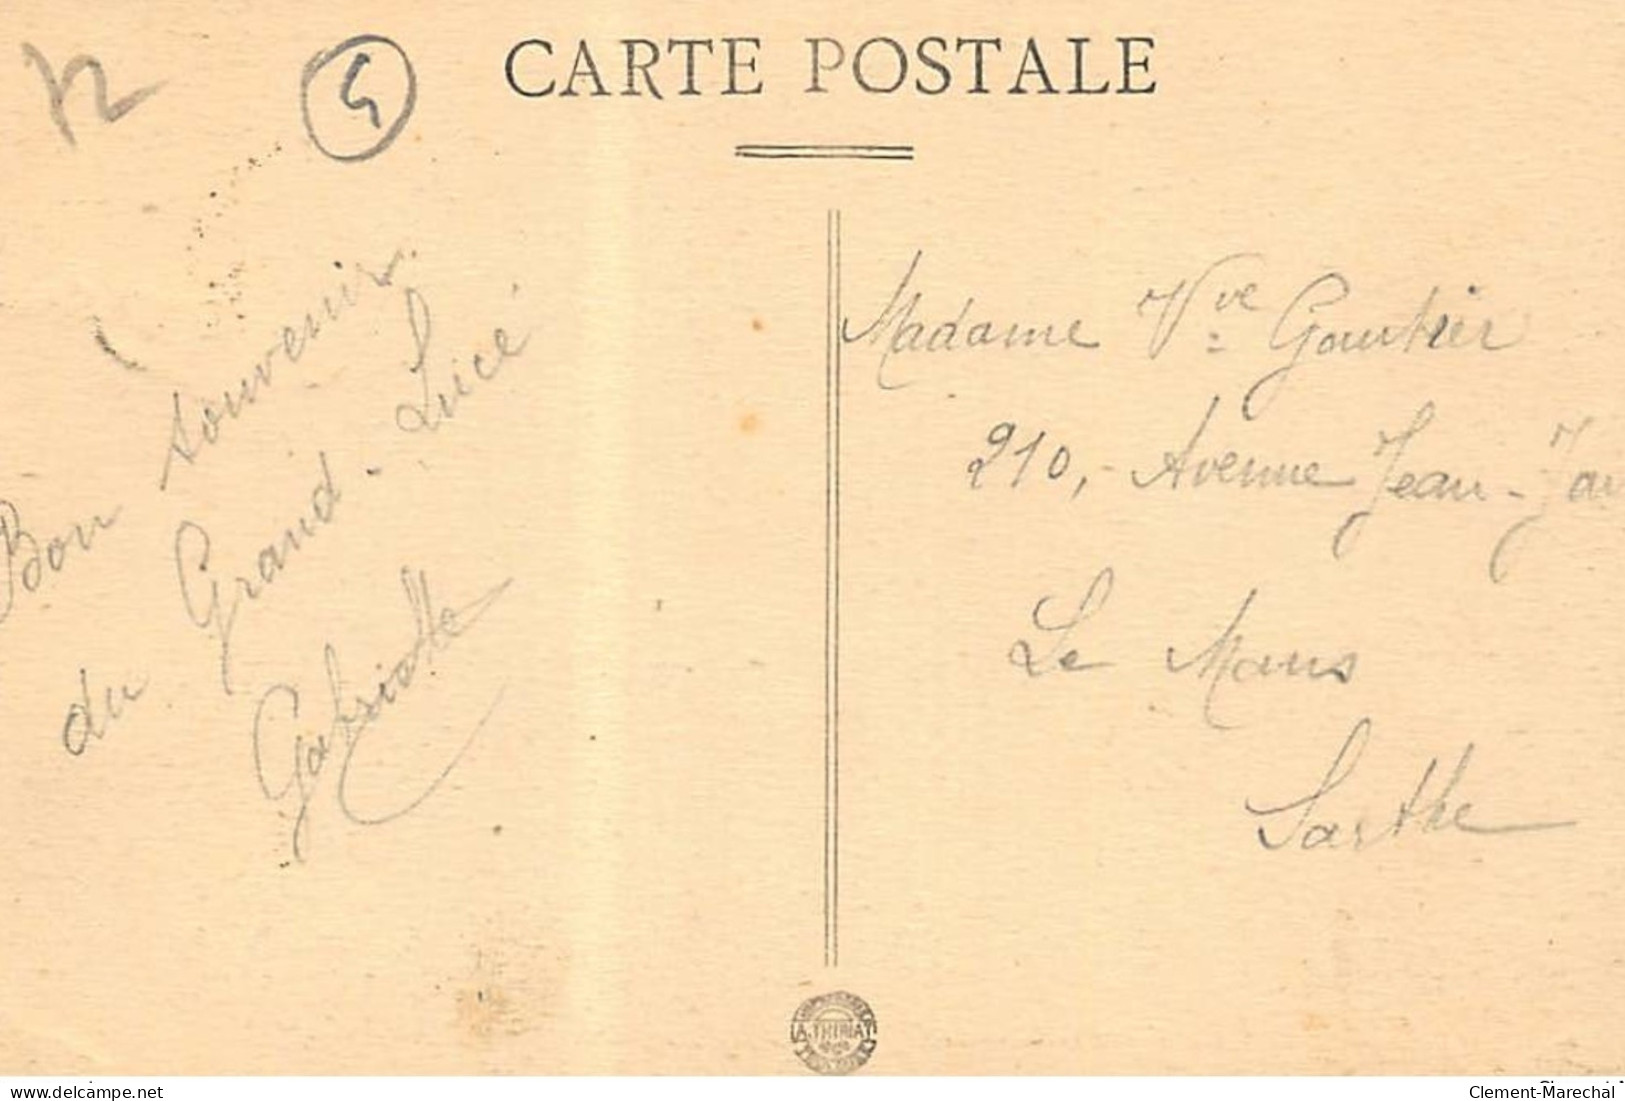 CARTE POSTALE
72
Bon souvenir
du Grand-Lucé
Gabrielle
Madame Vve Gautier
210, Avenue Jean-Jau
Le Mans
Sarthe
A. THIRIAT
delcampe.net
Clement-Marechal